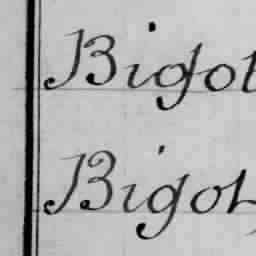 Bigot
Bigot,